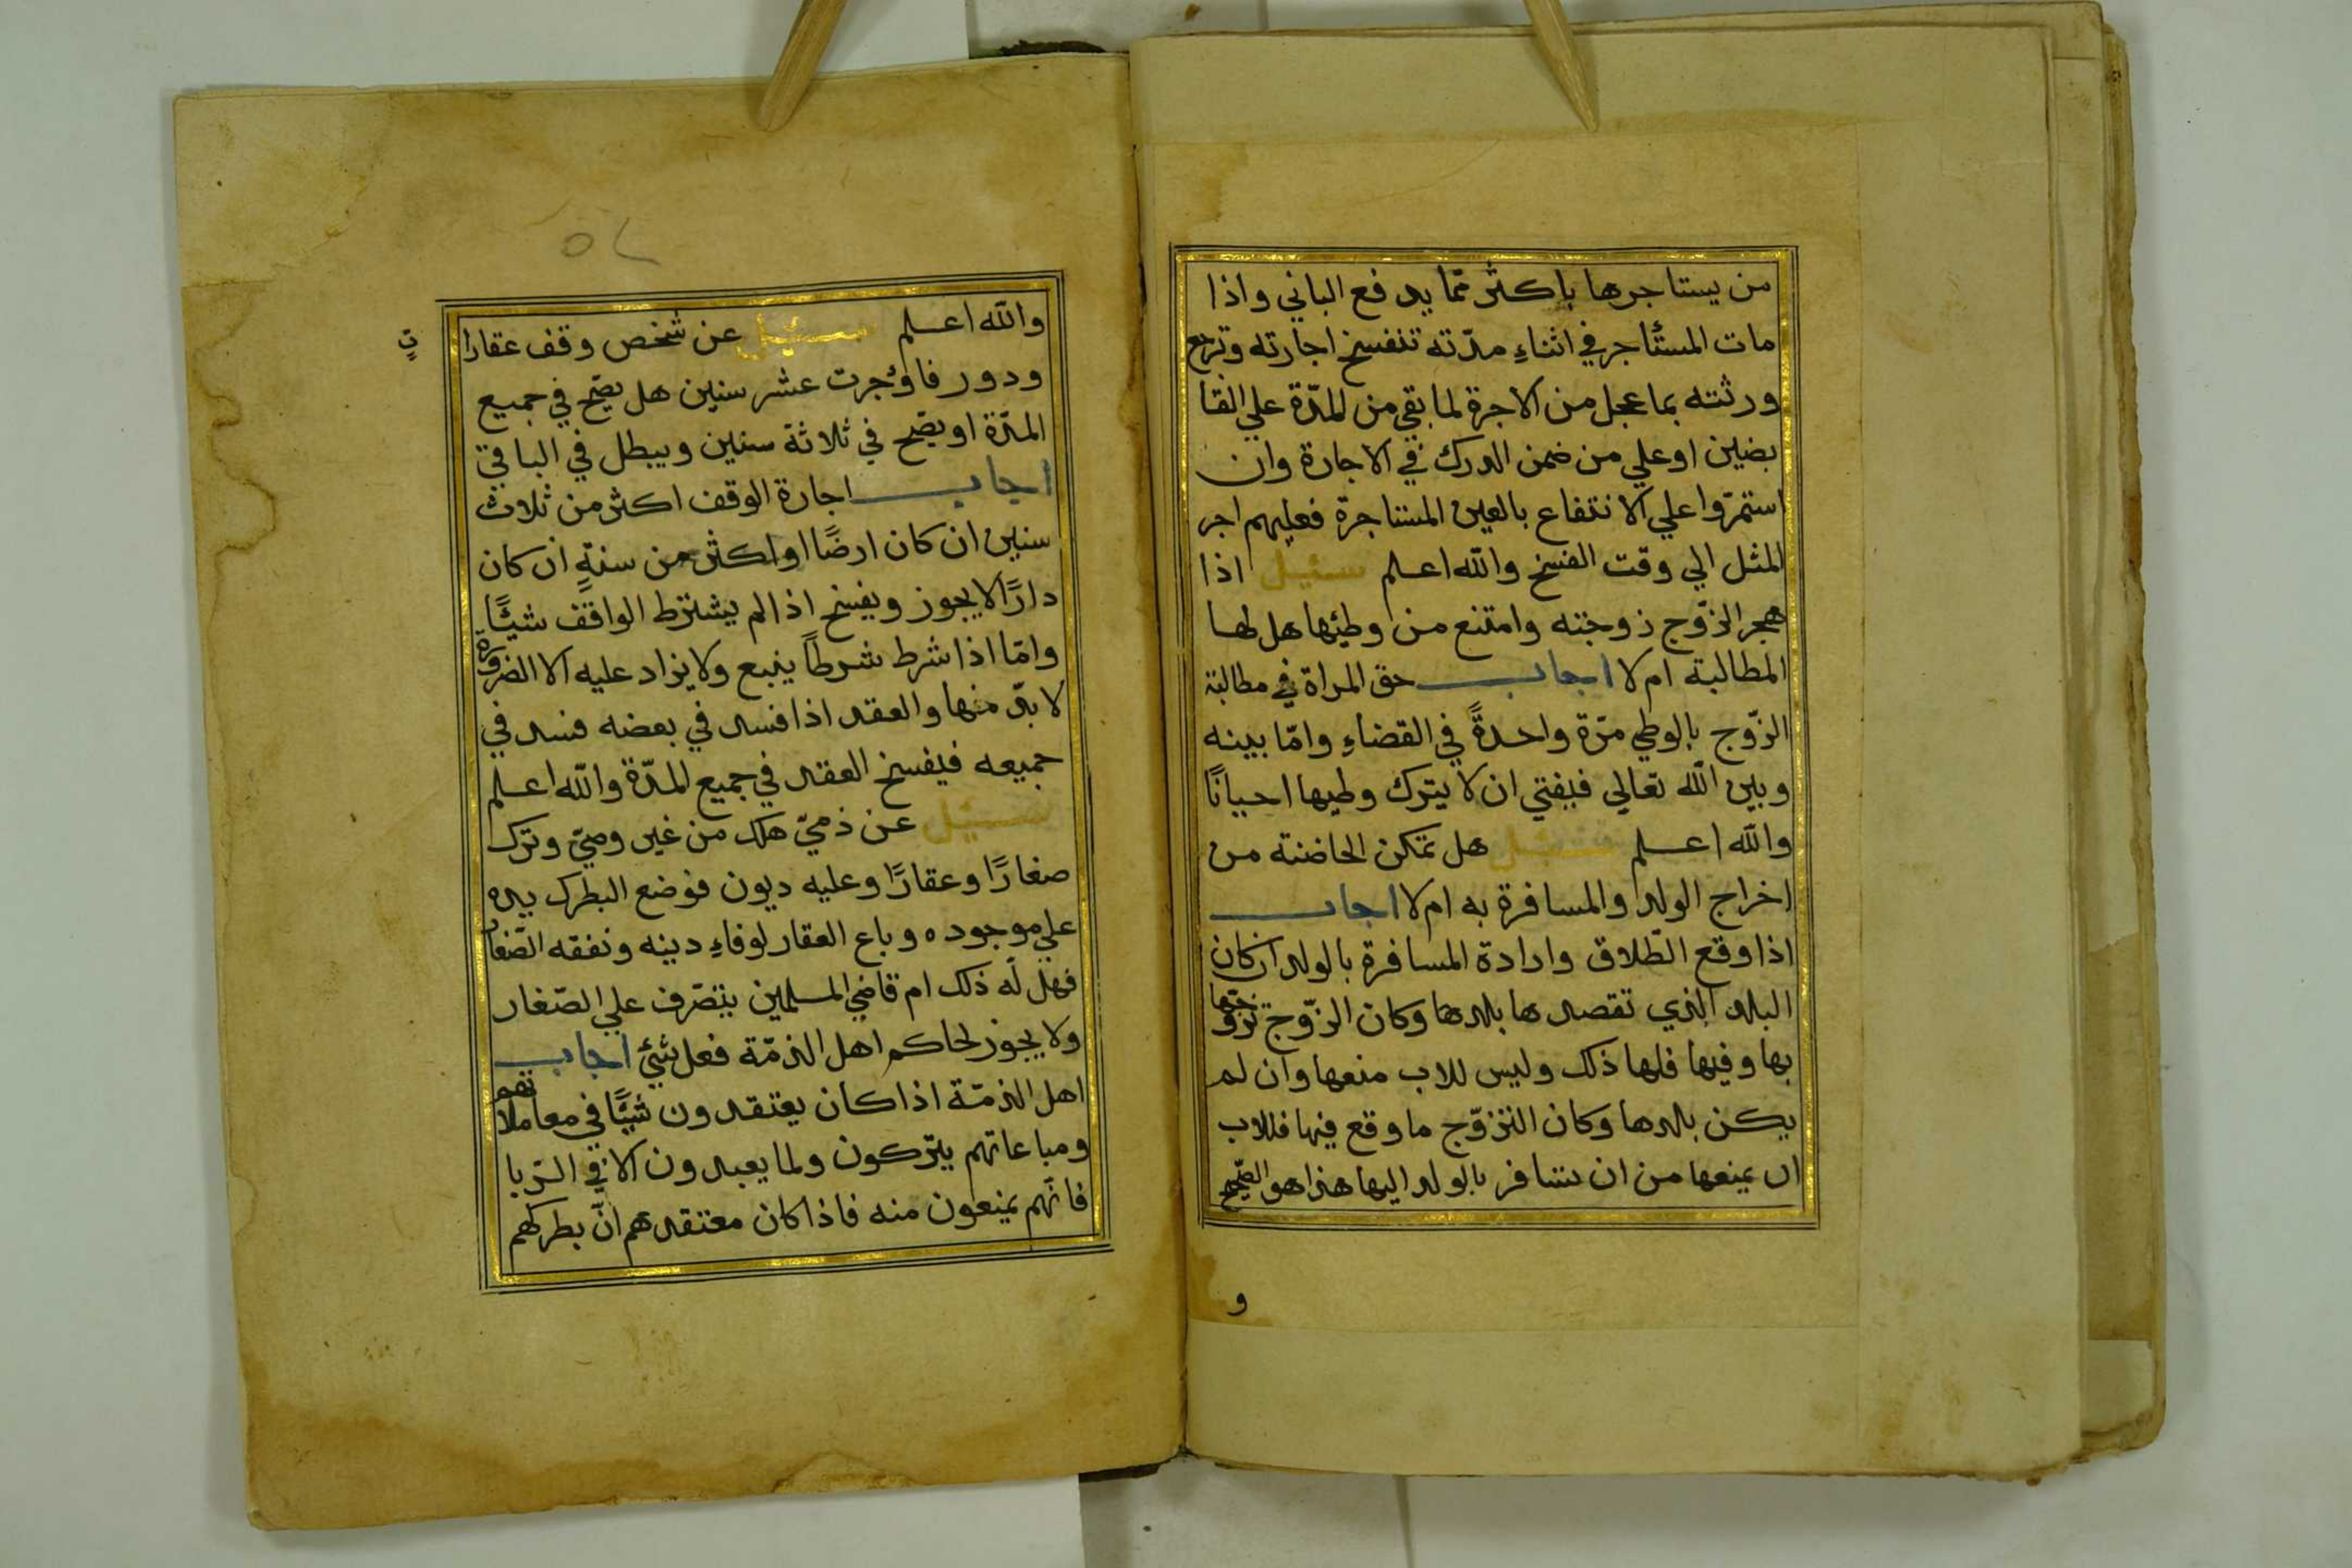 من يستاجرها باكثر ممّا يدفع الباني واذا
مات المستأجر في اثناءِ مدّته تنفسخ اجارته وترجع
ورثته بما عجل من الاجرة لما بقي من المدّة علي القا
بضين او علي من ضمن الدرك في الاجارة وان
استمرّوا علي الانتفاع بالعين المستاجرة فعليهم اجر
المثل الي وقت الفسخ والله اعلم سئيل اذا
هجر الزّوج زوجته وامتنع من وطيئها هل لها
المطالبة ام لا اجاب حق المراة في مطالبة
الزّوج بالوطي مرّة واحدةً في القضاءِ وامّا بينه
وبين الله تعالي فيفتي ان لا يترك وطيها احيانًا
والله اعلم سئيل هل تمكن الحاضنة من
اخراج الولد والمسافرة به ام لا اجاب
اذا وقع الطّلاق وارادة المسافرة بالولد ان كان
البلد الذي تقصدها بلدها وكان الزّوج تزوّجها
بها وفيها فلها ذلك وليس للاب منعها وان لم
يكن بلدها وكان التزوّج ما وقع فيها فللاب
ان يمنعها من ان تسافر بالولد اليها هذا هو الصّحيح
و
٥٢
والله اعلم سئيل عن شخص وقف عقارا
ودور فاوُجرت عشر سنين هل يصّح في جميع
المدّة او يصّح في ثلاثة سنين ويبطل في الباقي
اجاب اجارة الوقف اكثر من ثلاث
سنين ان كان ارضًا او اكثر من سنةٍ ان كان
دارًا لا يجوز ويفسخ اذا لم يشترط الواقف شيئًا
وامّا اذا شرط شرطاً يتبع ولا يزاد عليه الا الضرورة
لا بدّ منها والعقد اذا فسد في بعضه فسد في
جميعه فيفسخ العقد في جميع المدّة والله اعلم
سئيل عن ذميّ هلك من غير وصيّ وترك
صغارًا وعقارًا وعليه ديون فوضع البطرك يده
علي موجوده وباع العقار لوفاءِ دينه ونفقه الصّغار
فهل له ذلك ام قاضي المسلمين يتصّرف علي الصّغار
ولا يجوز لحاكم اهل الذمّة فعل شيئ اجاب
اهل الذمّة اذا كان يعتقدون شيئًا في معاملاتهم
ومباعاتهم يتركون ولما يعبدون الا في الرّبا
فانّهم يمنعون منه فاذا كان معتقدهم انّ بطركهم